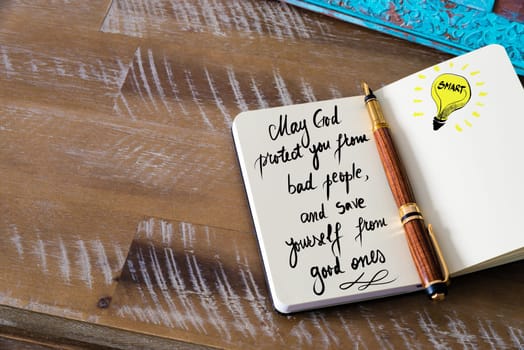 May God
protect you from
bad people,
and save
yourself from
good ones
SMART